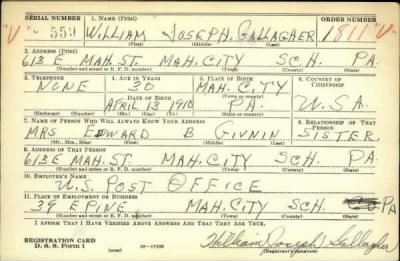 SERIAL NUMBER 1. NAME (Print) ORDER NUMBER
"V" 559 WILLIAM JOSEPH GALLAGHER 1811 "V"
(First) (Middle) (Last)
2. ADDRESS (Print)
613 E MAH. ST. MAH. CITY SCH. PA.
(Number and street or R. F. D. number) (Town) (County) (State)
3. TELEPHONE 4. AGE IN YEARS 5. PLACE OF BIRTH 6. COUNTRY OF CITIZENSHIP
NONE 30 MAH. CITY
DATE OF BIRTH (Town or county)
APRIL 13 1910 PA. U.S.A.
(Exchange) (Number) (Mo.) (Day) (Yr.) (State or country)
7. NAME OF PERSON WHO WILL ALWAYS KNOW YOUR ADDRESS 8. RELATIONSHIP OF THAT PERSON
MRS EDWARD B GIVNIN SISTER.
(Mr., Mrs., Miss) (First) (Middle) (Last)
9. ADDRESS OF THAT PERSON
613 E MAH. ST. MAH. CITY SCH PA.
(Number and street or R. F. D. number) (Town) (County) (State)
10. EMPLOYER'S NAME
U.S. POST OFFICE
11. PLACE OF EMPLOYMENT OR BUSINESS
39 E PINE MAH. CITY SCH. PA
(Number and street or R. F. D. number) (Town) (County) (State)
I AFFIRM THAT I HAVE VERIFIED ABOVE ANSWERS AND THAT THEY ARE TRUE.
REGISTRATION CARD
D. S. S. Form 1 (over) 16—17105 William Joseph Gallagher
(Registrant's signature)